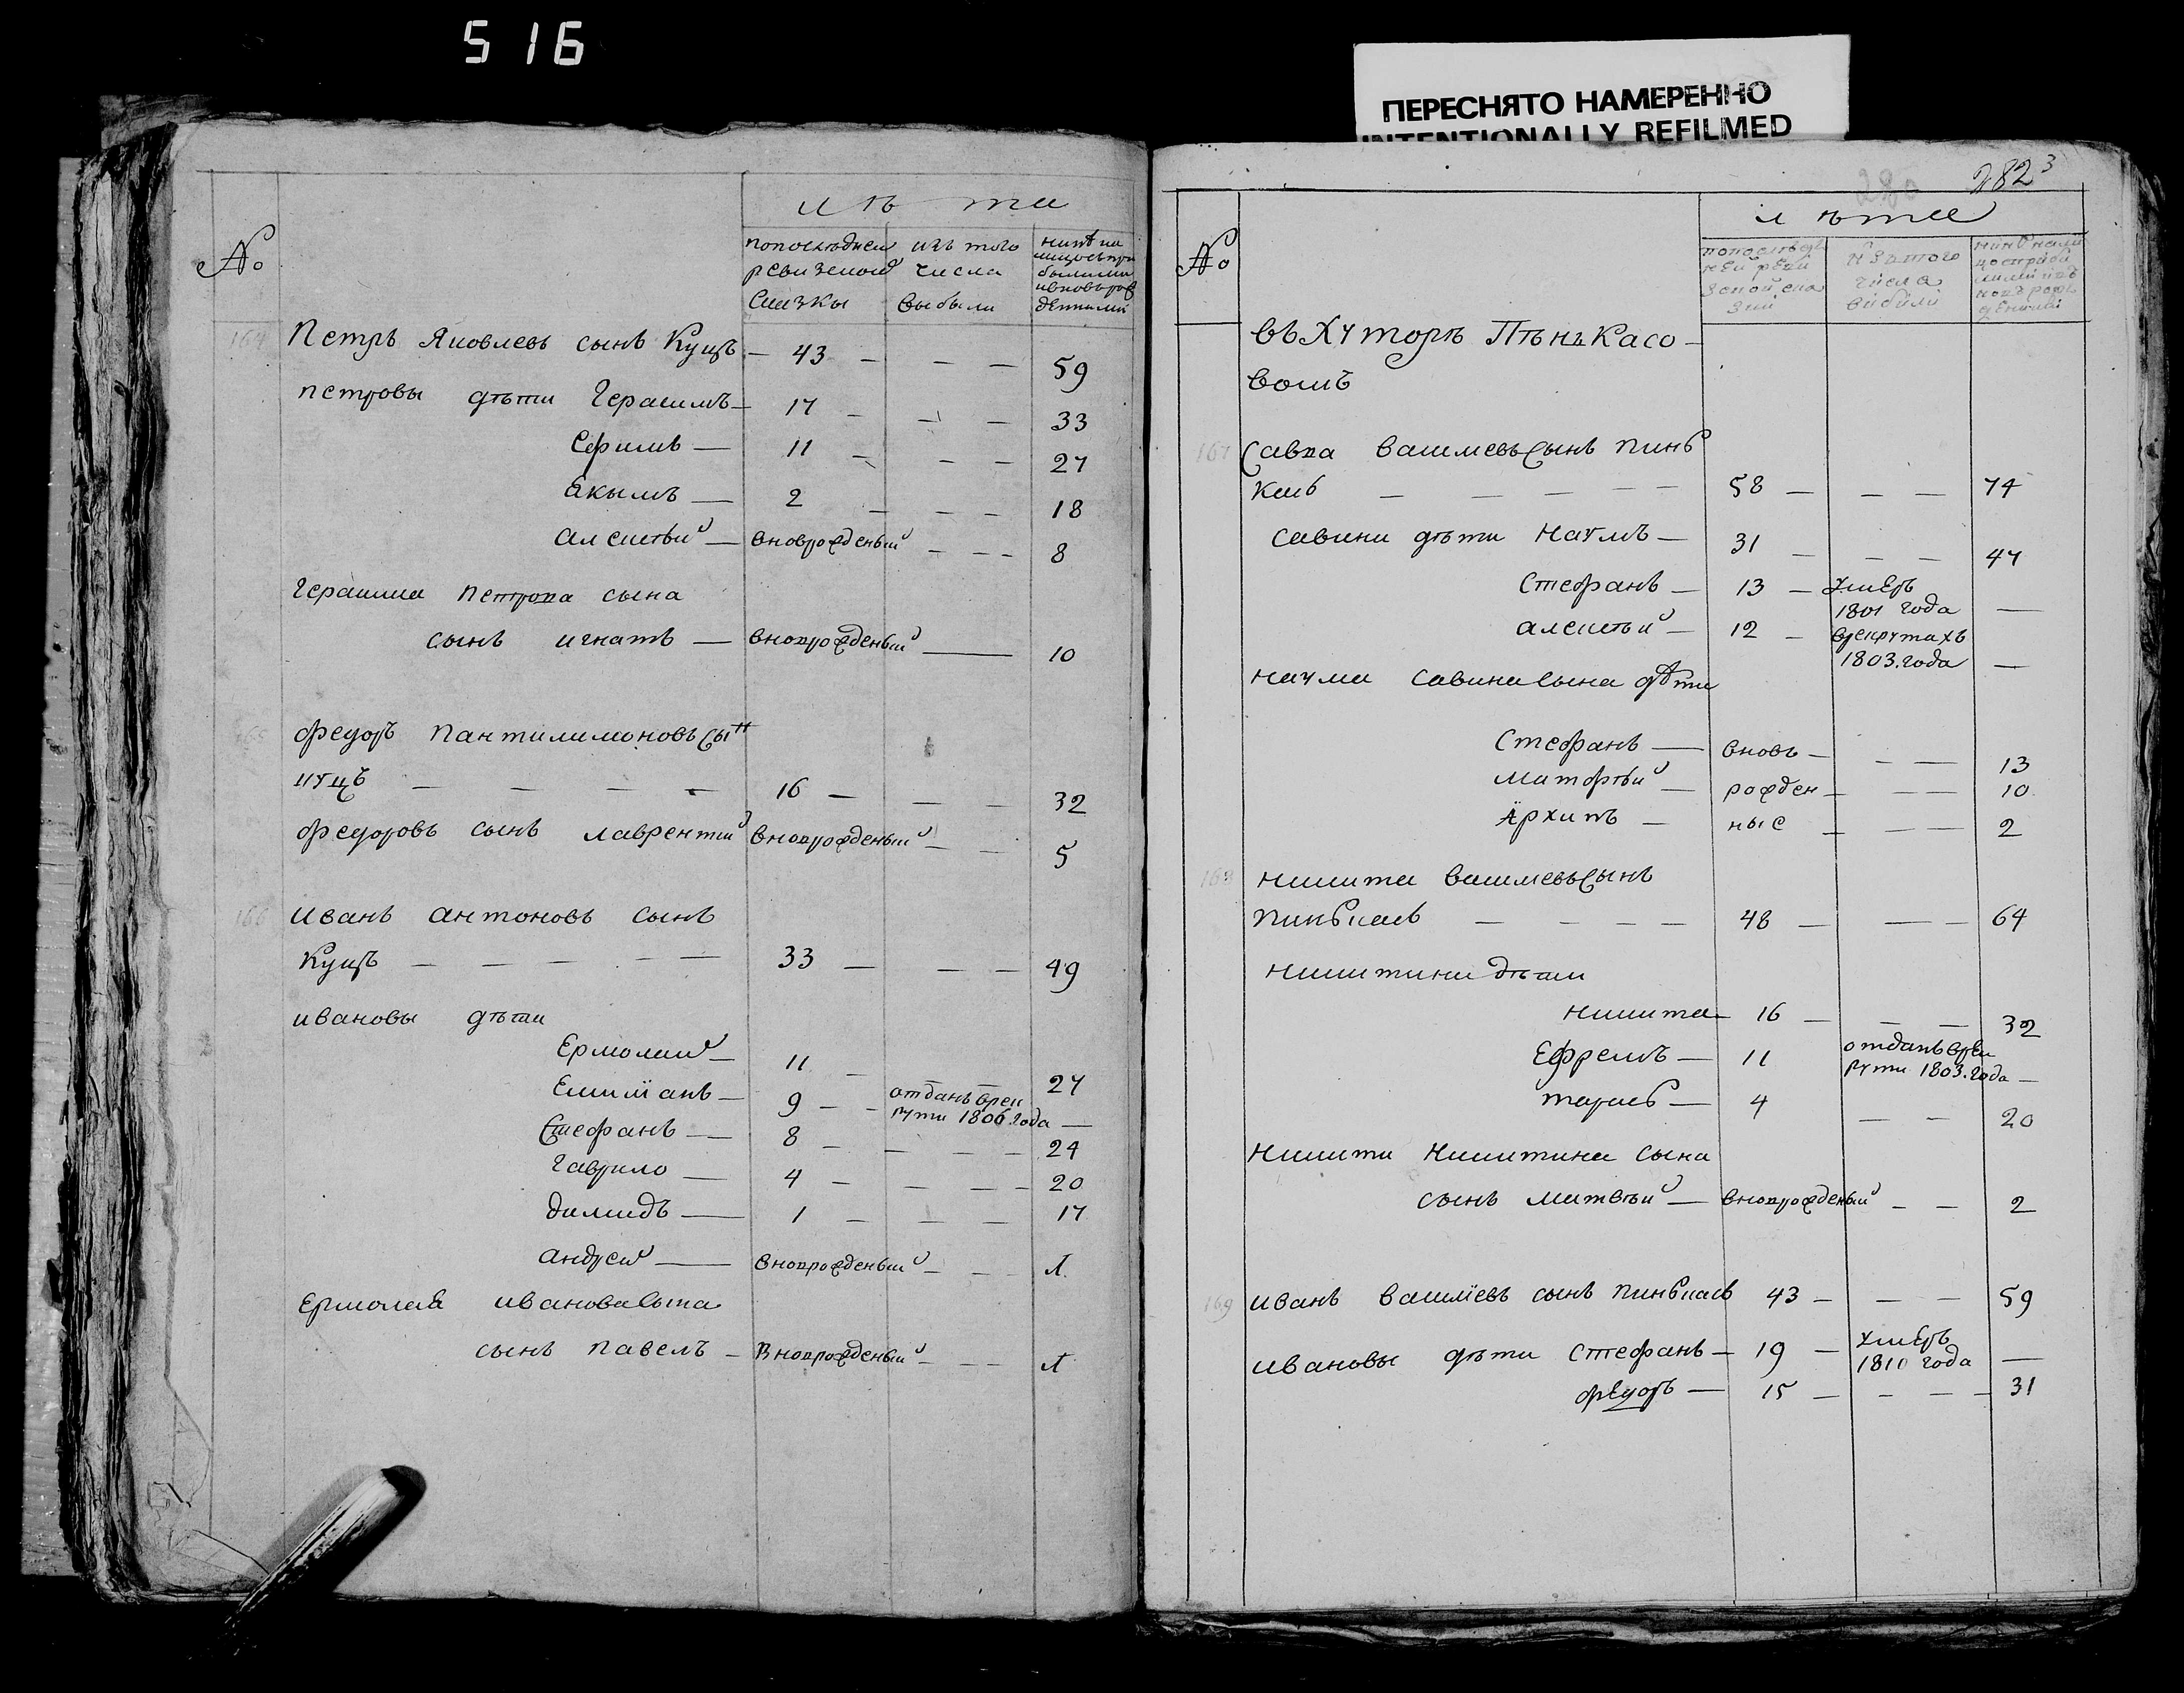 516
ПЕРЕСНЯТО НАМЕРЕННО
INTENTIONALLY REFILMED
№
лѣта
попоследней ревизской сказки
изъ того числа выбыли
164 Петръ Яковлевъ сынъ Куцъ — 43 — — — 59
петровы дѣти Герасимъ — 17 — — — 33
Ефимъ — 11 — — — 27
Екымъ — 2 — — — 18
алексѣй — вновърожденый — — — 8
Герасима петрова сына
сынъ игнатъ — вновърожденый — 10
165 федоръ пантилимоновъ сын
куцъ — — — — 16 — — — 32
федоровъ сынъ лаврентий вновърожденый — — 5
166 иванъ антоновъ сынъ
Куцъ — — — — — 33 — — — 49
ивановы дѣти
Ермолай — 11 — 27
Емилианъ — 9 — — отданъ врек
рути 1806. года —
Стефанъ — 8 — — — — 24
Гаврило — 4 — — — — 20
димидъ — 1 — — — 17
андрей — вновърожденый — — 1
Ермолая иванова сына
сынъ павелъ — вновърожденый — — — 1
280 282 3
№
лѣта
попослѣдней ревизской сказки
изъ того числа выбыли
въ Хуторѣ Пѣнькасо-
вомъ
167 Савка василевъ сынъ пинь
касъ — — — — — 58 — — — 74
савини дѣти наумъ — 31 — — — 47
Стефанъ — 13 — умеръ
1801 года —
алексѣй — 12 — врекрутахъ
1803. года —
наума савина сына дѣти
Стефанъ — вновь — — — 13
матфѣй — рожден — — — 10
Архипъ — ные — — — 2
168 никита василевъ сынъ
пинькасъ — — — — 48 — — — 64
никитини дѣти
никита — 16 — — — 32
Ефремъ — 11 отданъ врек
рути 1803. года —
тарасъ — 4 — — 20
никити никитина сина
сынъ матвѣй — вновърожденый — — 2
169 иванъ василевъ сынъ пинькасъ 43 — — — 59
ивановы дѣти стефанъ — 19 — умеръ
1810 года —
федоръ — 15 — — — — 31